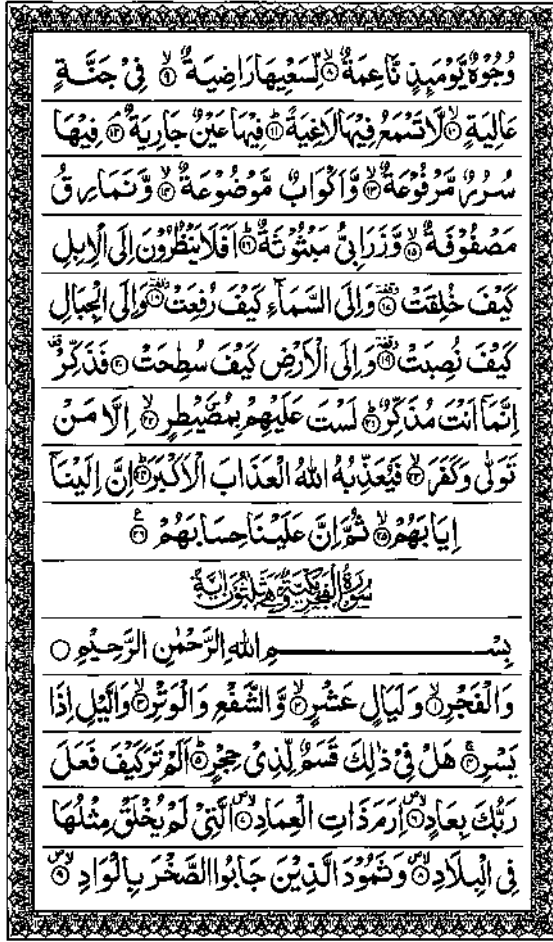 وُجُوْهٌ يَّوْمَىِٕذٍ نَّاعِمَةٌ ۙ۝۸ لِّسَعْیِهَا رَاضِیَةٌ ۙ۝۹ فِیْ جَنَّةٍ
عَالِیَةٍ ۙ۝۱۰ لَّا تَسْمَعُ فِیْهَا لَاغِیَةً ؕ۝۱۱ فِیْهَا عَیْنٌ جَارِیَةٌ ۘ۝۱۲ فِیْهَا
سُرُرٌ مَّرْفُوْعَةٌ ۙ۝۱۳ وَّاَكْوَابٌ مَّوْضُوْعَةٌ ۙ۝۱۴ وَّنَمَارِقُ
مَصْفُوْفَةٌ ۙ۝۱۵ وَّزَرَابِیُّ مَبْثُوْثَةٌ ؕ۝۱۶ اَفَلَا یَنْظُرُوْنَ اِلَی الْاِبِلِ
كَیْفَ خُلِقَتْ ۥ۝۱۷ وَاِلَی السَّمَآءِ كَیْفَ رُفِعَتْ ۥ۝۱۸ وَاِلَی الْجِبَالِ
كَیْفَ نُصِبَتْ ۥ۝۱۹ وَاِلَی الْاَرْضِ كَیْفَ سُطِحَتْ ۝۲۰ فَذَكِّرْ ۫ؕ
اِنَّمَاۤ اَنْتَ مُذَكِّرٌ ؕ۝۲۱ لَسْتَ عَلَیْهِمْ بِمُصَۜیْطِرٍ ۙ۝۲۲ اِلَّا مَنْ
تَوَلّٰی وَكَفَرَ ۙ۝۲۳ فَیُعَذِّبُهُ اللّٰهُ الْعَذَابَ الْاَكْبَرَ ؕ۝۲۴ اِنَّ اِلَیْنَاۤ
اِیَابَهُمْ ۙ۝۲۵ ثُمَّ اِنَّ عَلَیْنَا حِسَابَهُمْ ۠۝۲۶
سُوْرَةُ الْفَجْرِ مَكِّیَّةٌ وَّهِیَ ثَلٰثُوْنَ اٰیَةً
بِسْمِ اللّٰهِ الرَّحْمٰنِ الرَّحِیْمِ ۝
وَالْفَجْرِ ۙ۝۱ وَلَیَالٍ عَشْرٍ ۙ۝۲ وَّالشَّفْعِ وَالْوَتْرِ ۙ۝۳ وَالَّیْلِ اِذَا
یَسْرِ ۚ۝۴ هَلْ فِیْ ذٰلِكَ قَسَمٌ لِّذِیْ حِجْرٍ ؕ۝۵ اَلَمْ تَرَ كَیْفَ فَعَلَ
رَبُّكَ بِعَادٍ ۪ۙ۝۶ اِرَمَ ذَاتِ الْعِمَادِ ۪ۙ۝۷ الَّتِیْ لَمْ یُخْلَقْ مِثْلُهَا
فِی الْبِلَادِ ۪ۙ۝۸ وَثَمُوْدَ الَّذِیْنَ جَابُوا الصَّخْرَ بِالْوَادِ ۪ۙ۝۹